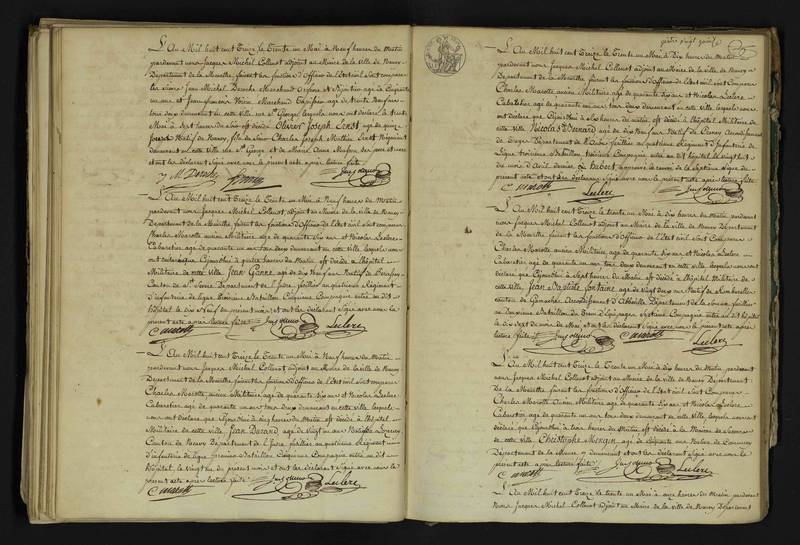 L'An Mil huit cent Treize le Trente un Mai à Neuf heures du Matin
pardevant nous Jacques Michel Collenot adjoint au Maire de la ville de Nancy
Département de la Meurthe faisant les fonctions d'Officier de l'état civil sont comparus
les sieurs Jean Michel Demke Marchand
un ans et Jean François Marchand Epicier agé de trente
ans tous deux demeurant en cette ville rue St George lesquels nous ont déclaré que le trente
Mai à sept heures du soir est décédé Olivier Joseph Ernst agé de quinze
jours Natif de Nancy fils de Charles Joseph Mathieu Ernst
demeurant en cette ville rue St George et de Marie Anne ses père et mère
et ont les déclarants signé avec nous le présent acte après lecture faite
L'An Mil huit cent Treize le Trente un Mai à Neuf heures du Matin
pardevant nous Jacques Michel Collenot adjoint au Maire de la ville de Nancy
Département de la Meurthe faisant les fonctions d'Officier de l'état civil sont comparus
Charles Marotte ancien Militaire agé de quarante six ans et Nicolas Leclerc
Cabaretier agé de quarante un ans tous deux demeurant en cette ville lesquels nous
ont déclaré que Cejourd'hui à quatre heures du Matin est décédé à l'hôpital
Militaire de cette ville Jean agé de dix Neuf ans Natif de
Canton de Département de l'Isère fusilier au quatrième Régiment
d'infanterie de ligne Troisième Bataillon Cinquième Compagnie entré au dit
hôpital le dix Neuf du présent mois et ont les déclarants signé avec nous le
présent acte après lecture faite
C marotte Leclerc
L'An Mil huit cent Treize le Trente un Mai à Neuf heures du Matin
pardevant nous Jacques Michel Collenot adjoint au Maire de la ville de Nancy
Département de la Meurthe faisant les fonctions d'Officier de l'état civil sont comparus
Charles Marotte ancien Militaire agé de quarante six ans et Nicolas Leclerc
Cabaretier agé de quarante un ans tous deux demeurant en cette ville lesquels
nous ont déclaré que Cejourd'hui à cinq heures du Matin est décédé à l'hôpital
Militaire de cette ville Jean Durand agé de vingt un ans Natif de
Canton de Département de l'Isère fusilier au quatrième Régiment
d'infanterie de ligne premier Bataillon Cinquième Compagnie entré au dit
hôpital le vingt du présent mois et ont les déclarants signé avec nous le
présent acte après lecture faite
C marotte Leclerc
quatre vingt
L'An Mil huit cent Treize le Trente un Mai à Dix heures du Matin
pardevant nous Jacques Michel Collenot adjoint au Maire de la ville de Nancy
Département de la Meurthe faisant les fonctions d'Officier de l'état civil sont comparus
Charles Marotte ancien Militaire agé de quarante six ans et Nicolas Leclerc
Cabaretier agé de quarante un ans tous deux demeurant en cette ville lesquels nous
ont déclaré que Cejourd'hui à six heures du matin est décédé à l'hôpital Militaire de
cette ville Nicolas agé de dix Neuf ans Natif de Arrondissement
de Département de l'Aube fusilier au quatrième Régiment d'Infanterie de
Ligne troisième Bataillon troisième Compagnie entré au dit hôpital le vingt huit
du mois d'Avril dernier
présent et ont les déclarants signé avec nous le présent acte après lecture faite
C marotte Leclerc
L'An Mil huit cent Treize le trente un Mai à dix heures du Matin pardevant
nous Jacques Michel Collenot adjoint au Maire de la ville de Nancy Département
de la Meurthe faisant les fonctions d'Officier de l'état civil sont Comparus
Charles Marotte ancien Militaire agé de quarante six ans et Nicolas Leclerc
Cabaretier agé de quarante un ans tous deux demeurant en cette ville lesquels nous ont
déclaré que Cejourd'hui à Sept heures du Matin est décédé à l'hôpital Militaire de
cette ville Jean Baptiste fontaine agé de vingt deux ans Natif de
canton de Gamaches Arrondissement d'Abbeville Département de la Somme fusilier
au Bataillon du Train d'Equipages Septième Compagnie entré au dit hôpital
le dix sept du mois de Mai et ont les déclarants signé avec nous le présent acte après
lecture faite C marotte Leclerc
L'An Mil huit cent Treize le trente un Mai à dix heures du Matin pardevant
nous Jacques Michel Collenot adjoint au Maire de la ville de Nancy Département
de la Meurthe faisant les fonctions d'Officier de l'état civil sont Comparus
Charles Marotte ancien Militaire agé de quarante six ans et Nicolas Leclerc
Cabaretier agé de quarante un ans tous deux demeurant en cette ville lesquels nous ont
déclaré que Cejourd'hui à heures du Matin est décédé à la Maison de Secours
de cette ville Christophe Mengin agé de soixante ans Natif de
Département de la Meurthe y demeurant et ont les déclarants signé avec nous le
présent acte après lecture faite
C marotte Leclerc
L'An Mil huit cent Treize le trente un Mai à onze heures du Matin pardevant
nous Jacques Michel Collenot adjoint au Maire de la ville de Nancy Département